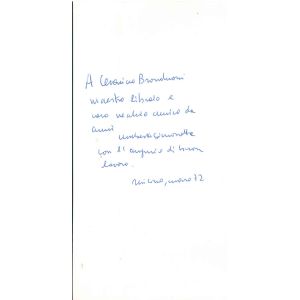 A Cesarino Branduani
maestro libraio e
caro vecchio amico da
anni Umberto Simonetta
con l'augurio di buon
lavoro.
Milano, marzo 72